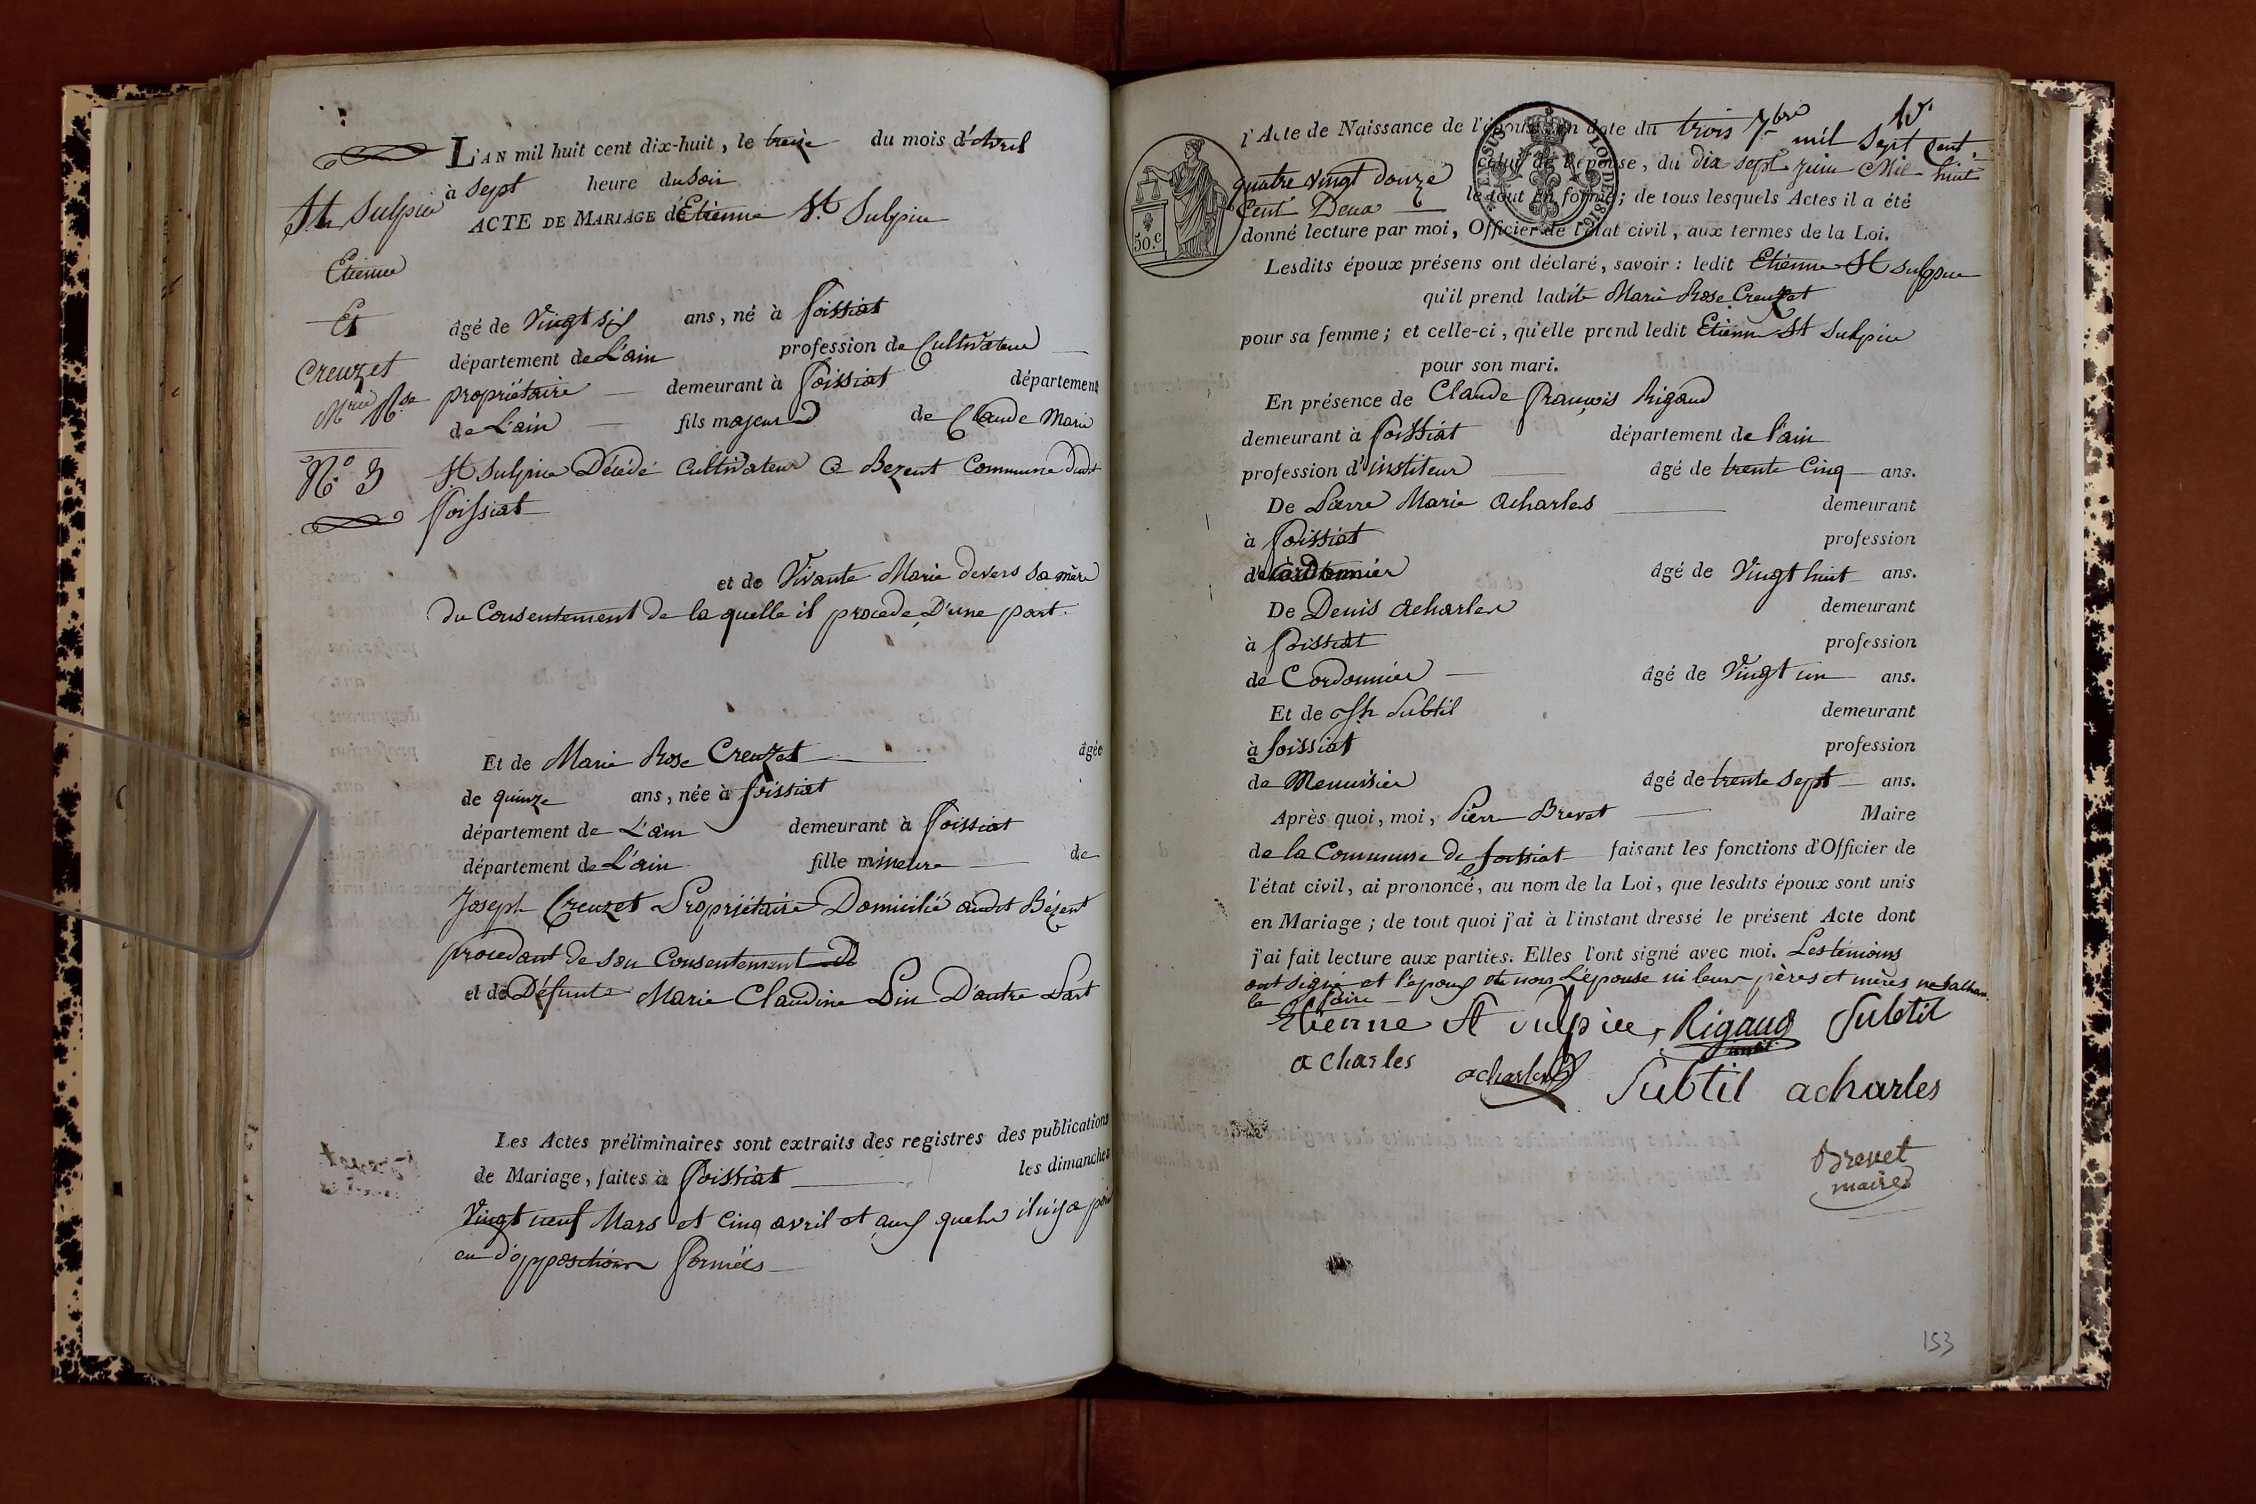 L'AN mil huit cent dix-huit, le treize du mois d'Avril
à sept heure du Soir
ACTE DE MARIAGE d'Etienne St. Sulpice
St. Sulpice
Etienne
Et
Creuzet
Mrie Rse
N.º 3
âgé de Vingt six ans, né à foissiat
département de L'ain profession de Cultivateur
propriétaire demeurant à foissiat département
de L'ain fils majeur de Claude Marie
St Sulpice Décédé cultivateur a Bezent Commune dudit
foissiat
et de Vivante Marie devers sa mère
du Consentement de la quelle il procede, D'une part.
Et de Marie Rose Creuzet âgée
de quinze ans, née à foissiat
département de L'ain demeurant à foissiat
département de L'ain fille mineure de
Joseph Creuzet Propriétaire Domicilié audit Bézent
procedant de son Consentement
et de Défunte Marie Claudine Pin D'autre Part
Les Actes préliminaires sont extraits des registres des publications
de Mariage, faites à foissiat les dimanches
Vingt neuf Mars et Cinq avril et aux quels il n'y a poin
eu d'oppositions formées
l'Acte de Naissance de l'époux, en date du trois 7bre mil sept cent
quatre vingt douze celui de l'épouse, du dix sept juin Mil huit
Cent Deux le tout en forme; de tous lesquels Actes il a été
donné lecture par moi, Officier de l'état civil, aux termes de la Loi.
50.c
EN SUS LOI DE 1816
Lesdits époux présens ont déclaré, savoir: ledit Etienne St sulpice
qu'il prend ladite Marie Rose Creuzet
pour sa femme; et celle-ci, qu'elle prend ledit Etienne St Sulpice
pour son mari.
En présence de Claude françois Rigaud
demeurant à foissiat département de l'ain
profession d'institeur âgé de trente Cinq ans.
De Pierre Marie acharles demeurant
à foissiat profession
de Cordonnier âgé de Vingt huit ans.
De Denis acharles demeurant
à foissiat profession
de Cordonnier âgé de Vingt un ans.
Et de Jh Subtil demeurant
à foissiat profession
de Menuisier âgé de trente sept ans.
Après quoi, moi, Pierre Brevet Maire
de la Commune de foissiat faisant les fonctions d'Officier de
l'état civil, ai prononcé, au nom de la Loi, que lesdits époux sont unis
en Mariage; de tout quoi j'ai à l'instant dressé le présent Acte dont
j'ai fait lecture aux parties. Elles l'ont signé avec moi. Les témoins
ont signé et l'époux et non l'épouse ni leurs pères et mères ne sachan
le faire
Etienne St Sulpice, Rigaud Subtil
acharles acharles Subtil acharles
Brevet
maire
153